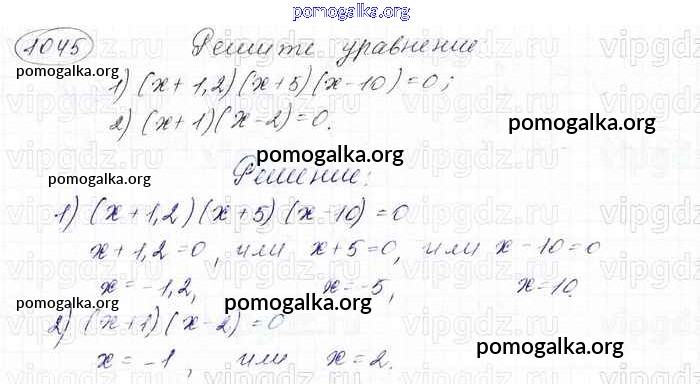 pomogalka.org
1045 Решите уравнение:
pomogalka.org
1) (x+1,2)(x+5)(x-10)=0;
2) (x+1)(x-2)=0.
pomogalka.org
pomogalka.org
Решение:
pomogalka.org
1) (x+1,2)(x+5)(x-10)=0
x+1,2=0, или x+5=0, или x-10=0
x=-1,2, x=-5, x=10.
pomogalka.org pomogalka.org pomogalka.org
2) (x+1)(x-2)=0
x=-1, или x=2.
pomogalka.org
vipgdz.ru